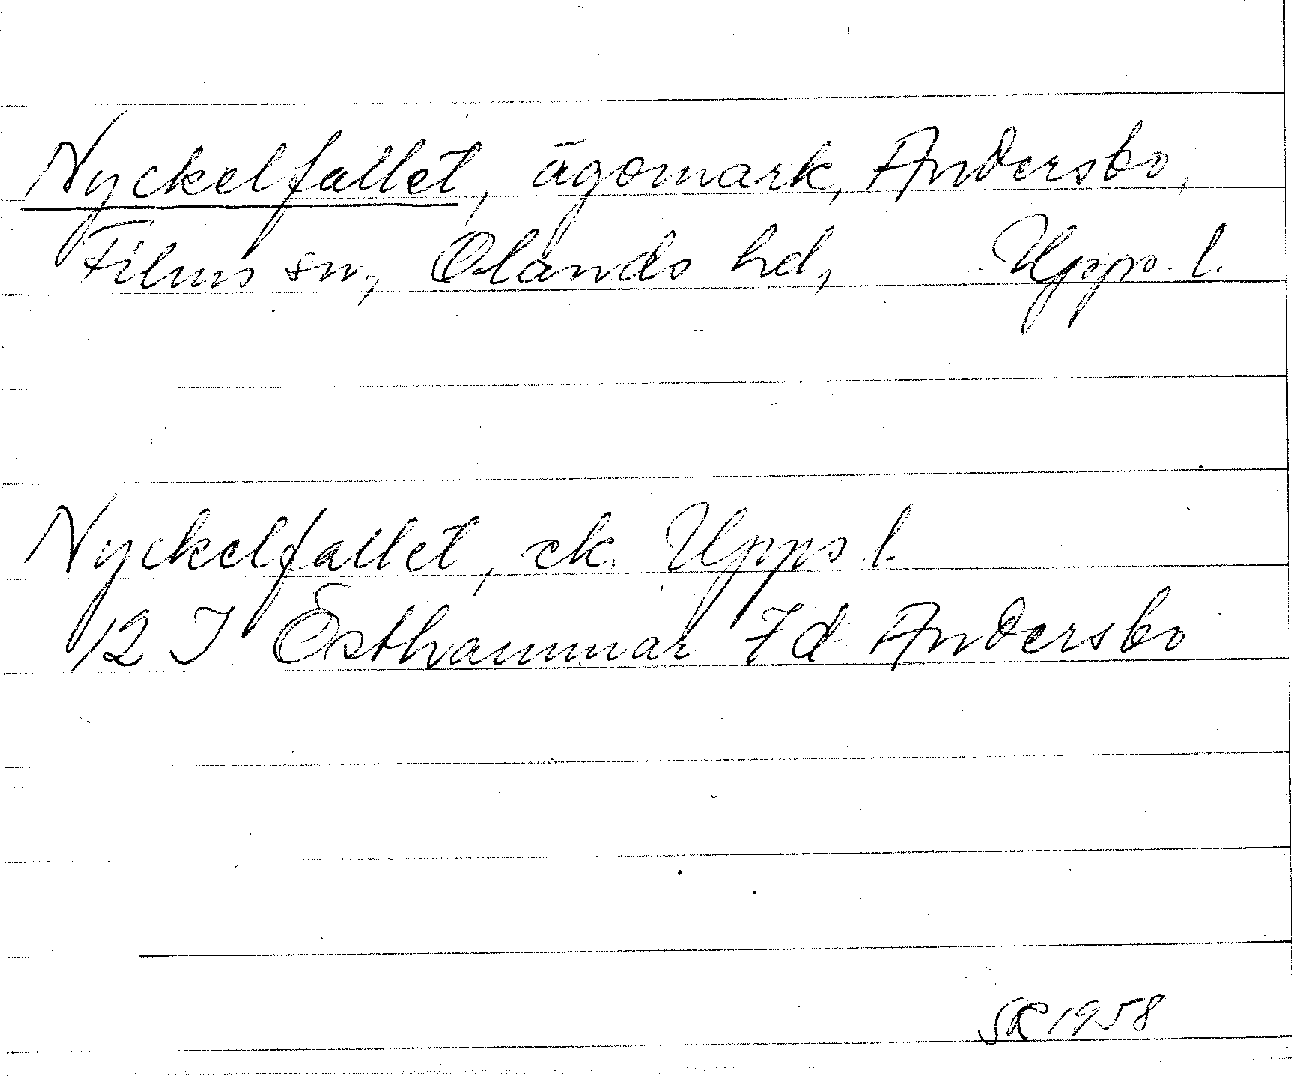 Nyckelfallet, ägomark, Andersbo,
Films sn, Olands hd, Upps. l.
Nyckelfallet, ek. Upps l.
12 I Östhammar 7d Andersbo
SR 1958